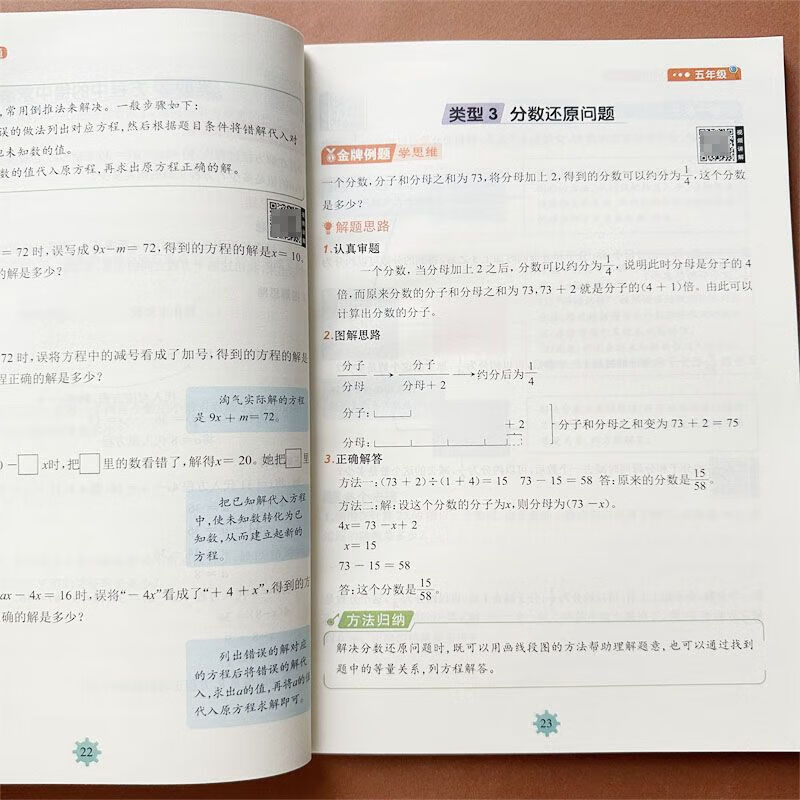 ,常用倒推法来解决。一般步骤如下:
误的做法列出对应方程,然后根据题目条件将错解代入对
也未知数的值。
数的值代入原方程,再求出原方程正确的解。
= 72 时,误写成 9x-m= 72,得到的方程的解是x= 10。
的解是多少?
72 时,误将方程中的减号看成了加号,得到的方程的解是
程正确的解是多少?
淘气实际解的方程
是 9x + m= 72。
)-□ x时,把□里的数看错了,解得x= 20。她把□里
把已知解代入方程
中,使未知数转化为已
知数,从而建立起新的
方程。
ax - 4x = 16 时,误将“- 4x”看成了“+ 4 + x”,得到的方
确的解是多少?
列出错误的解对应
的方程后将错误的解代
入,求出a的值,再将a的值
代入原方程求解即可。
22
五年级
类型 3 分数还原问题
金牌例题 学思维
视频讲解
一个分数,分子和分母之和为 73,将分母加上 2,得到的分数可以约分为1/4,这个分数
是多少?
解题思路
1.认真审题
一个分数,当分母加上 2 之后,分数可以约分为1/4,说明此时分母是分子的 4
倍,而原来分数的分子和分母之和为 73,73 + 2 就是分子的(4 + 1)倍。由此可以
计算出分数的分子。
2.图解思路
分子/分母 → 分子/分母+2 → 约分后为1/4
分子:
+ 2
分子和分母之和变为 73 + 2 = 75
分母:
3.正确解答
方法一:(73 + 2)÷(1 + 4)= 15 73 - 15 = 58 答:原来的分数是15/58。
方法二:解:设这个分数的分子为x,则分母为(73 - x)。
4x= 73 -x+ 2
x= 15
73 - 15 = 58
答:这个分数是15/58。
方法归纳
解决分数还原问题时,既可以用画线段图的方法帮助理解题意,也可以通过找到
题中的等量关系,列方程解答。
23